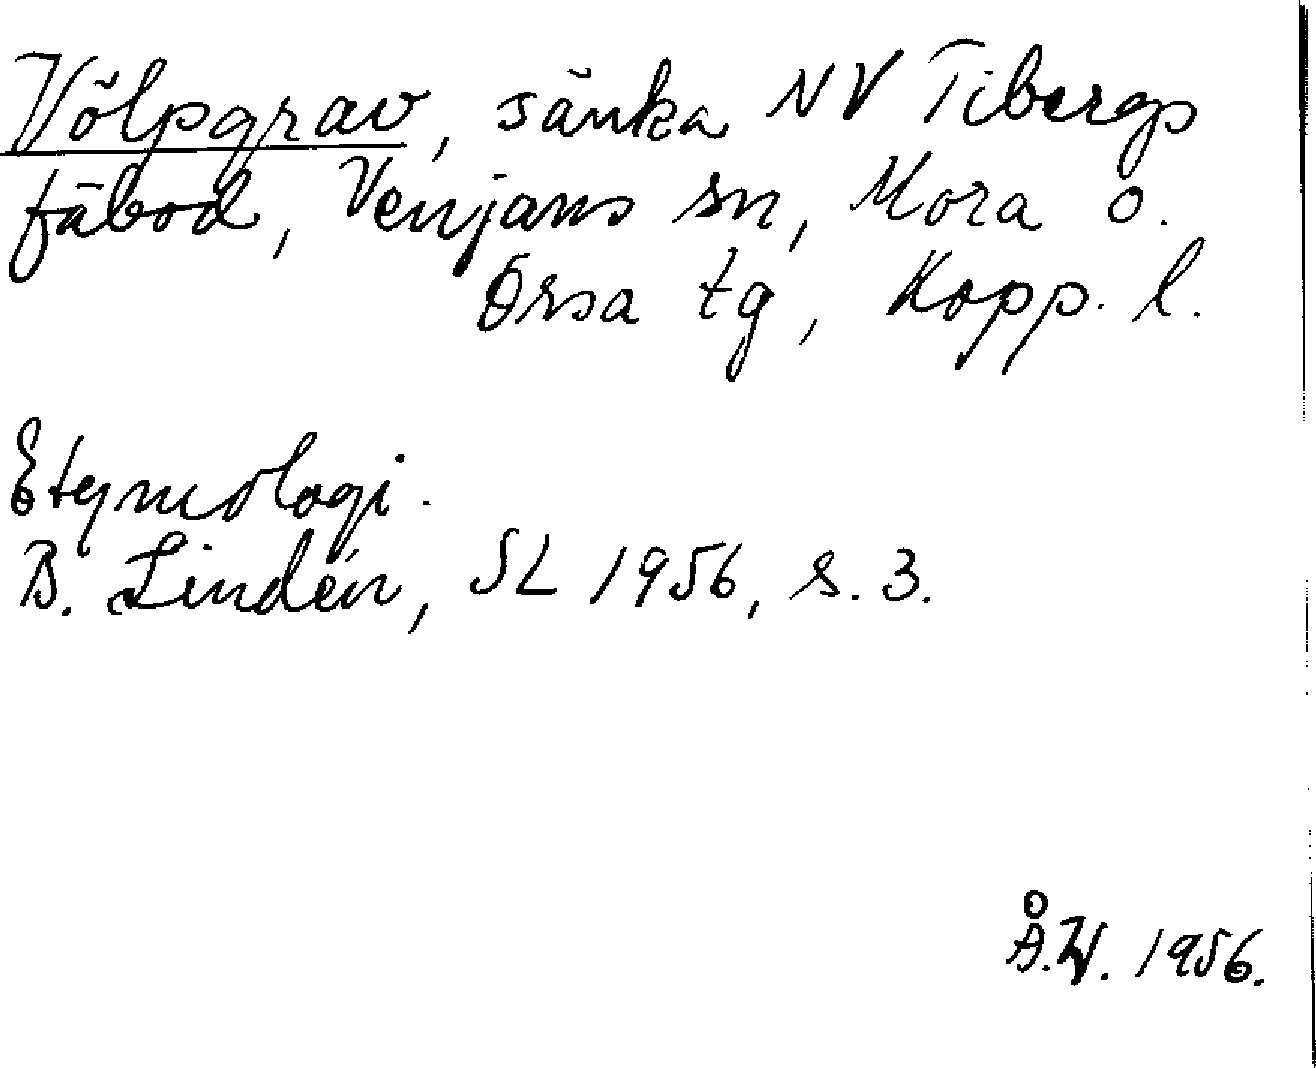 Völpgrav, sänka NV Tibergs
fäbod, Venjans sn, Mora o.
Orsa tg, Kopp. l.
Etymologi.
B. Lindén, SL 1956, s. 3.
Å.W. 1956.